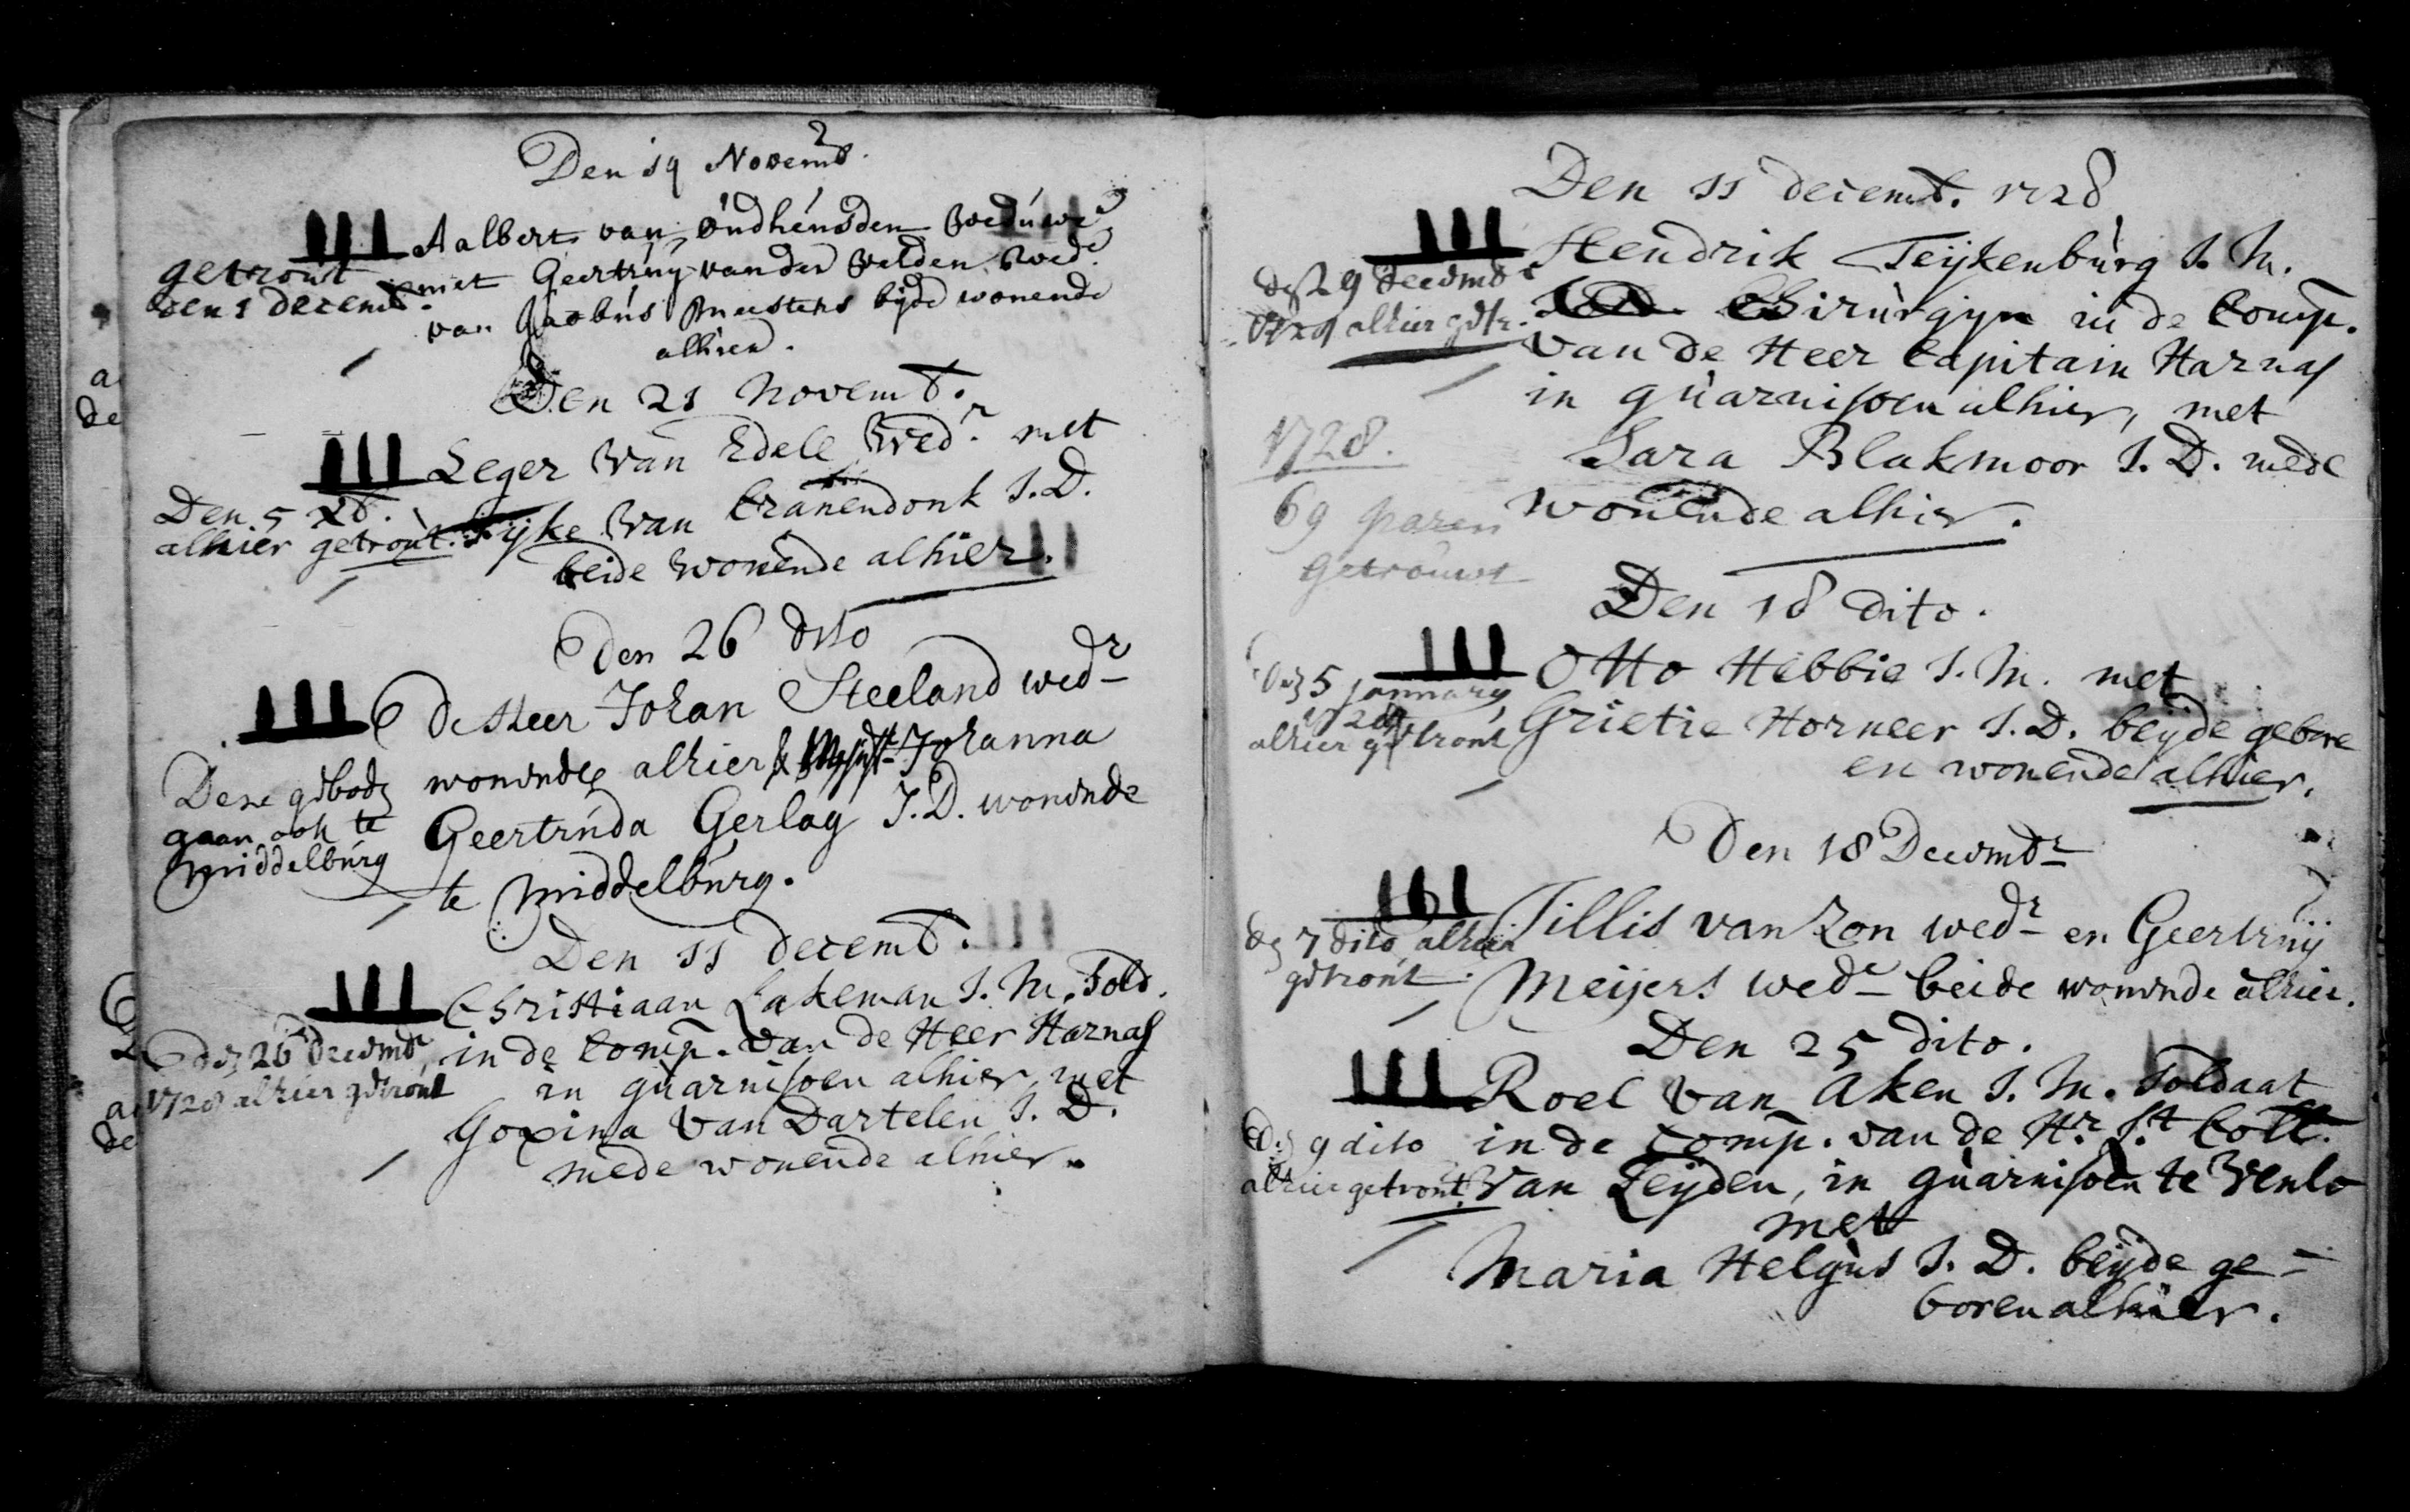 Den 19 Novemb.
Aalbert van Oudheusden Weduwe
getrout
met Geertruy van der Velden Wed.
den 1 decemb.
van Jacobus Meesters byde wonende
alhier.
Den 21 Novemb.
Leger Van Edele Wedr. met
Den 5 xb.
alhier getrout.
Fijke Van Cranendonk J.D.
beide wonende alhier.
Den 26 dito
de Heer Johan Steeland wedr
wonende alhier Johanna
Dese gebode
gaan ook te
middelburg
Geertruda Gerlag J.D. wonende
te middelburg.
Den 11 decemb.
Christiaan Lakeman J.M. Sold.
in de Comp. van de Heer Harnas
den 26 Decembr
1728 alhier getrout
in guarnisoen alhier, met
Goxina Van Dartelen J.D.
mede wonende alhier.
Den 11 decemb. 1728
Hendrik Teijkenburg J.M.
Chirurgyn in de Comp.
van de Heer Capitain Harnas
in guarnisoen alhier, met
Sara Blakmoor J.D. mede
wonende alhier.
1728.
69 paren
getrouwt
Den 18 dito.
Otto Hebbie J.M. met
5 january
alhier getrout
Grietie Horneer J.D. beyde gebore
en wonende alhier.
Den 18 Decembr
Jillis van Zon wedr en Geertruij
7 dito alhier
getrout.
Meijers wede beide wonende alhier.
Den 25 dito.
Roel Van Aken J.M. Soldaat
in de Comp. van de Hr. Lt. Coll.
9 dito
alhier getrout.
Van Leyden, in guarnisoen te Venlo
met
Maria Helgus J.D. beyde ge-
boren alhier.